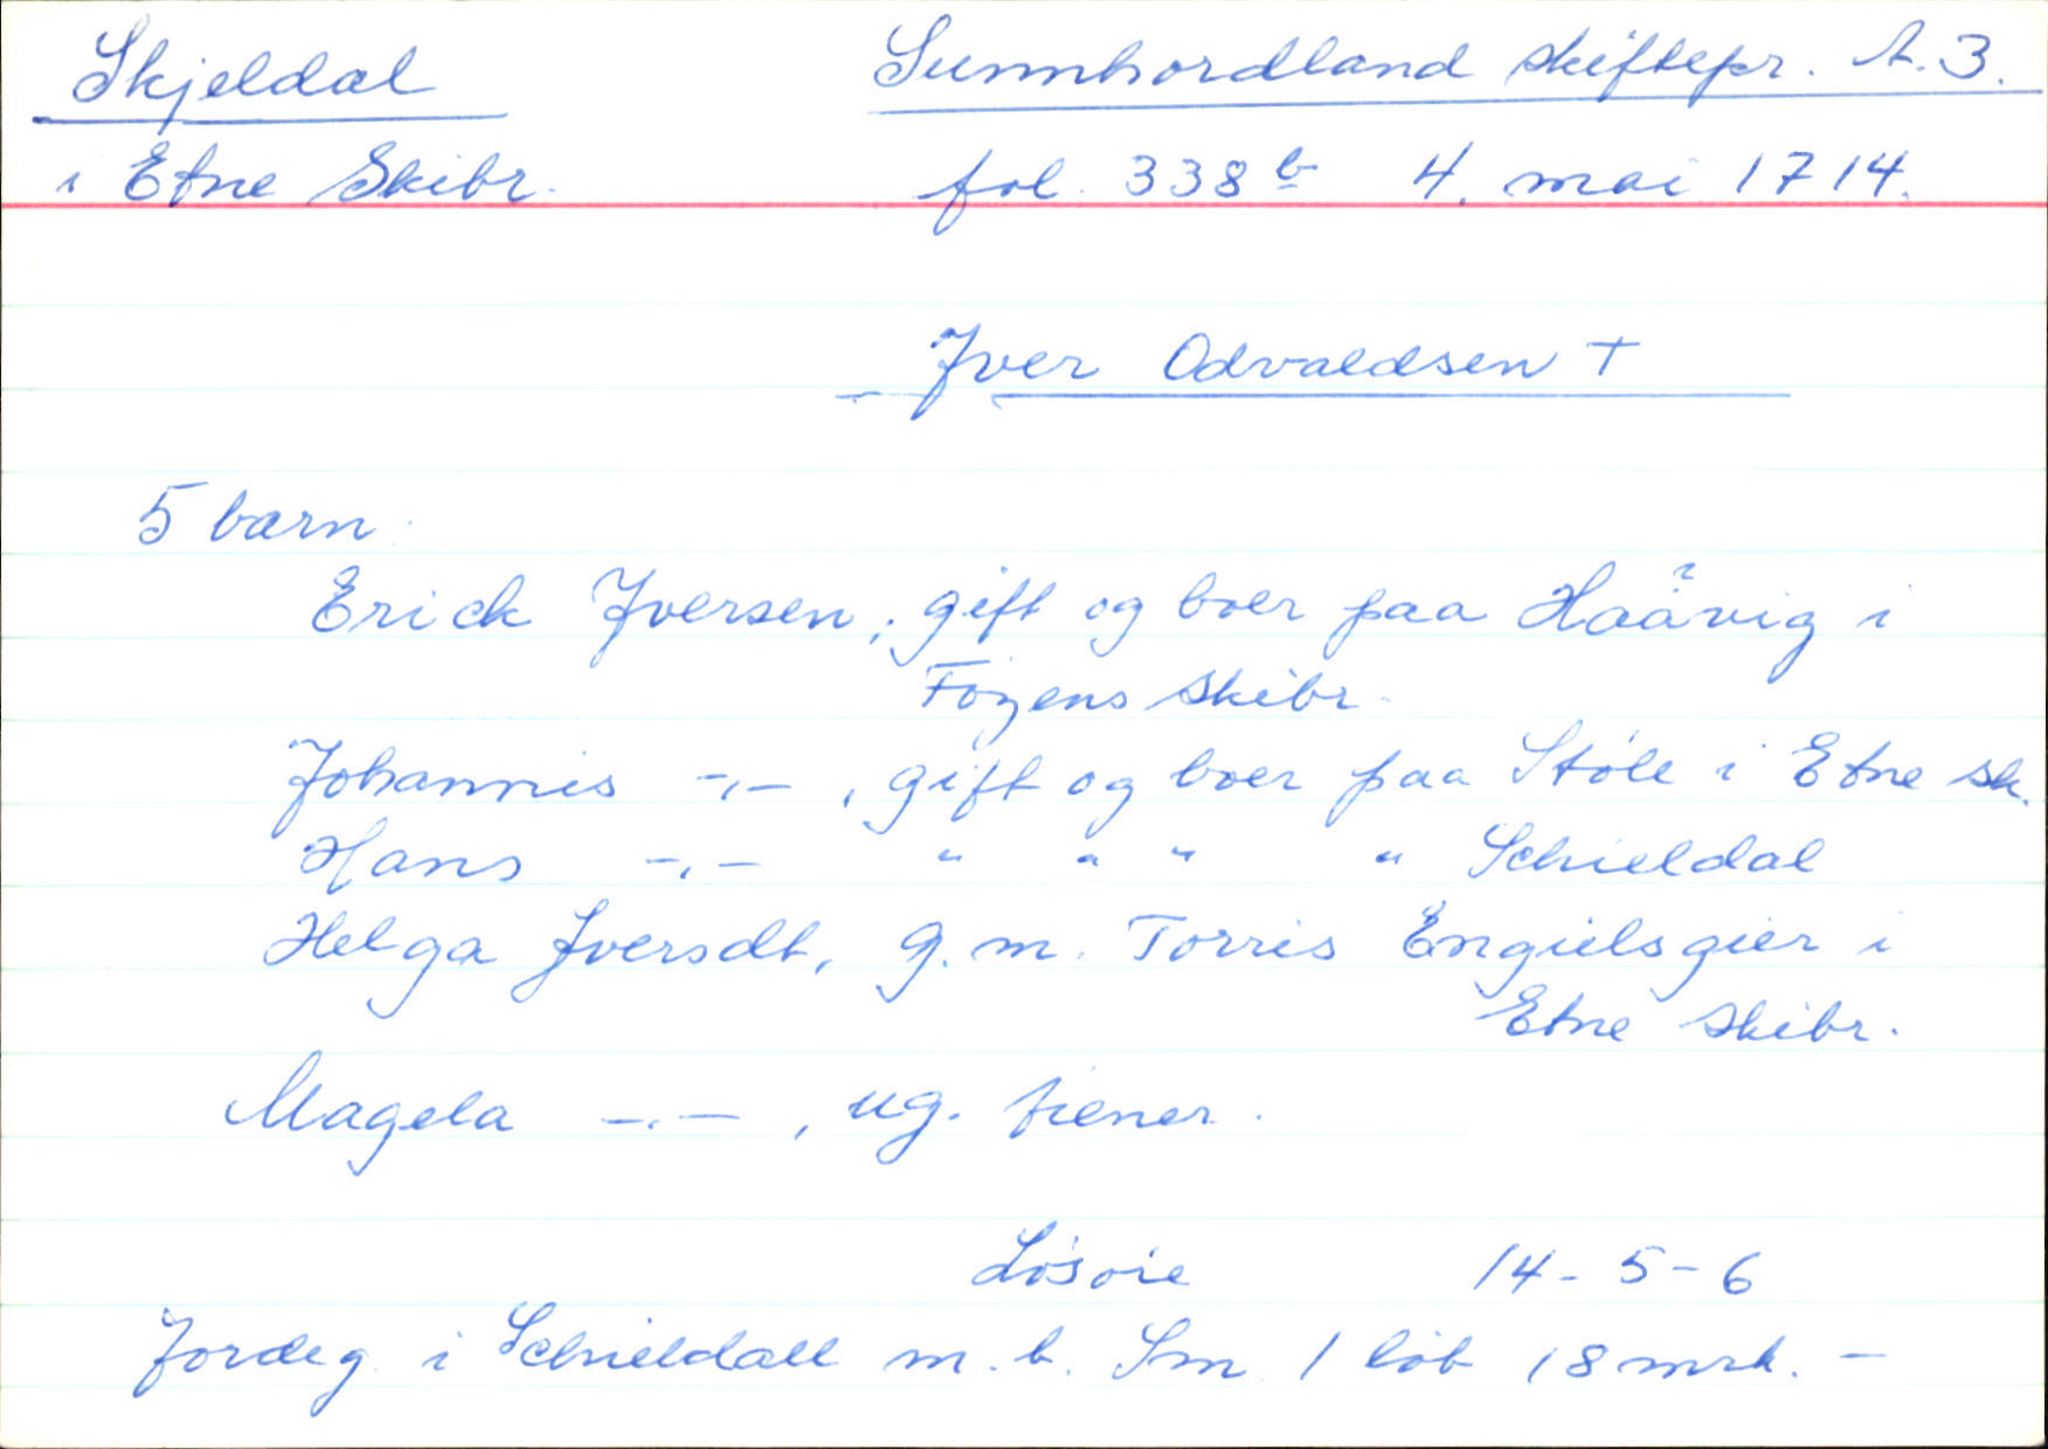 Skjeldal Sunnhordland skiftepr. A. 3.
i Etne Skibr. fol. 338 b 4. mai 1714.
Jver Odvaldsen +
5 barn
Erick Jversen, gift og boer paa Haåvig ? i
Föyens skibr.
Johannis -,-, gift og boer paa Støle i Etne sk.
Hans -,- " " " " Schieldal
Helga Jversdt, g. m. Torris Engielsgier i
Etne skibr.
Magela -,-, ug. tiener.
Løsøie 14 - 5 - 6
Jordeg. i Schieldall m. b. Sm. 1 löb 18 mrk. -